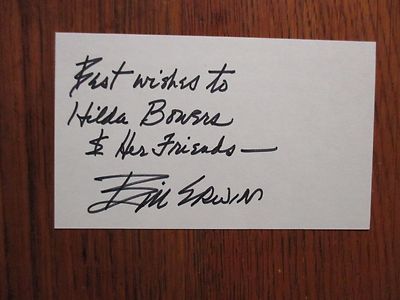 Best wishes to
Hilda Bowers
& Her Friends—
Bill Erwin